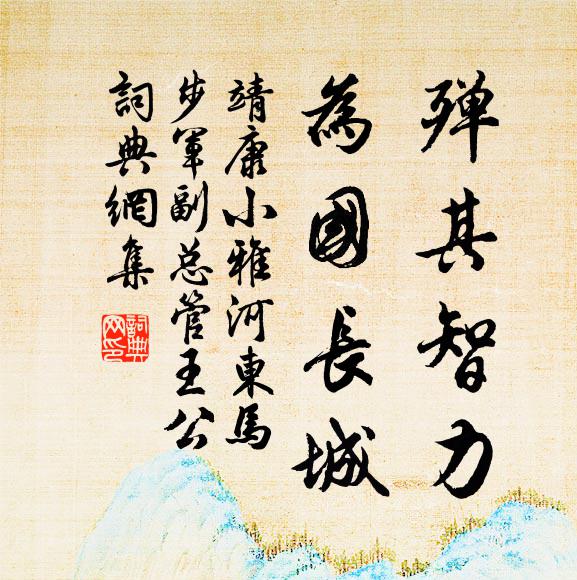 殫其智力
為國長城
靖康小雅河東馬
步軍副总管王公
詞典網集
詞典
网印